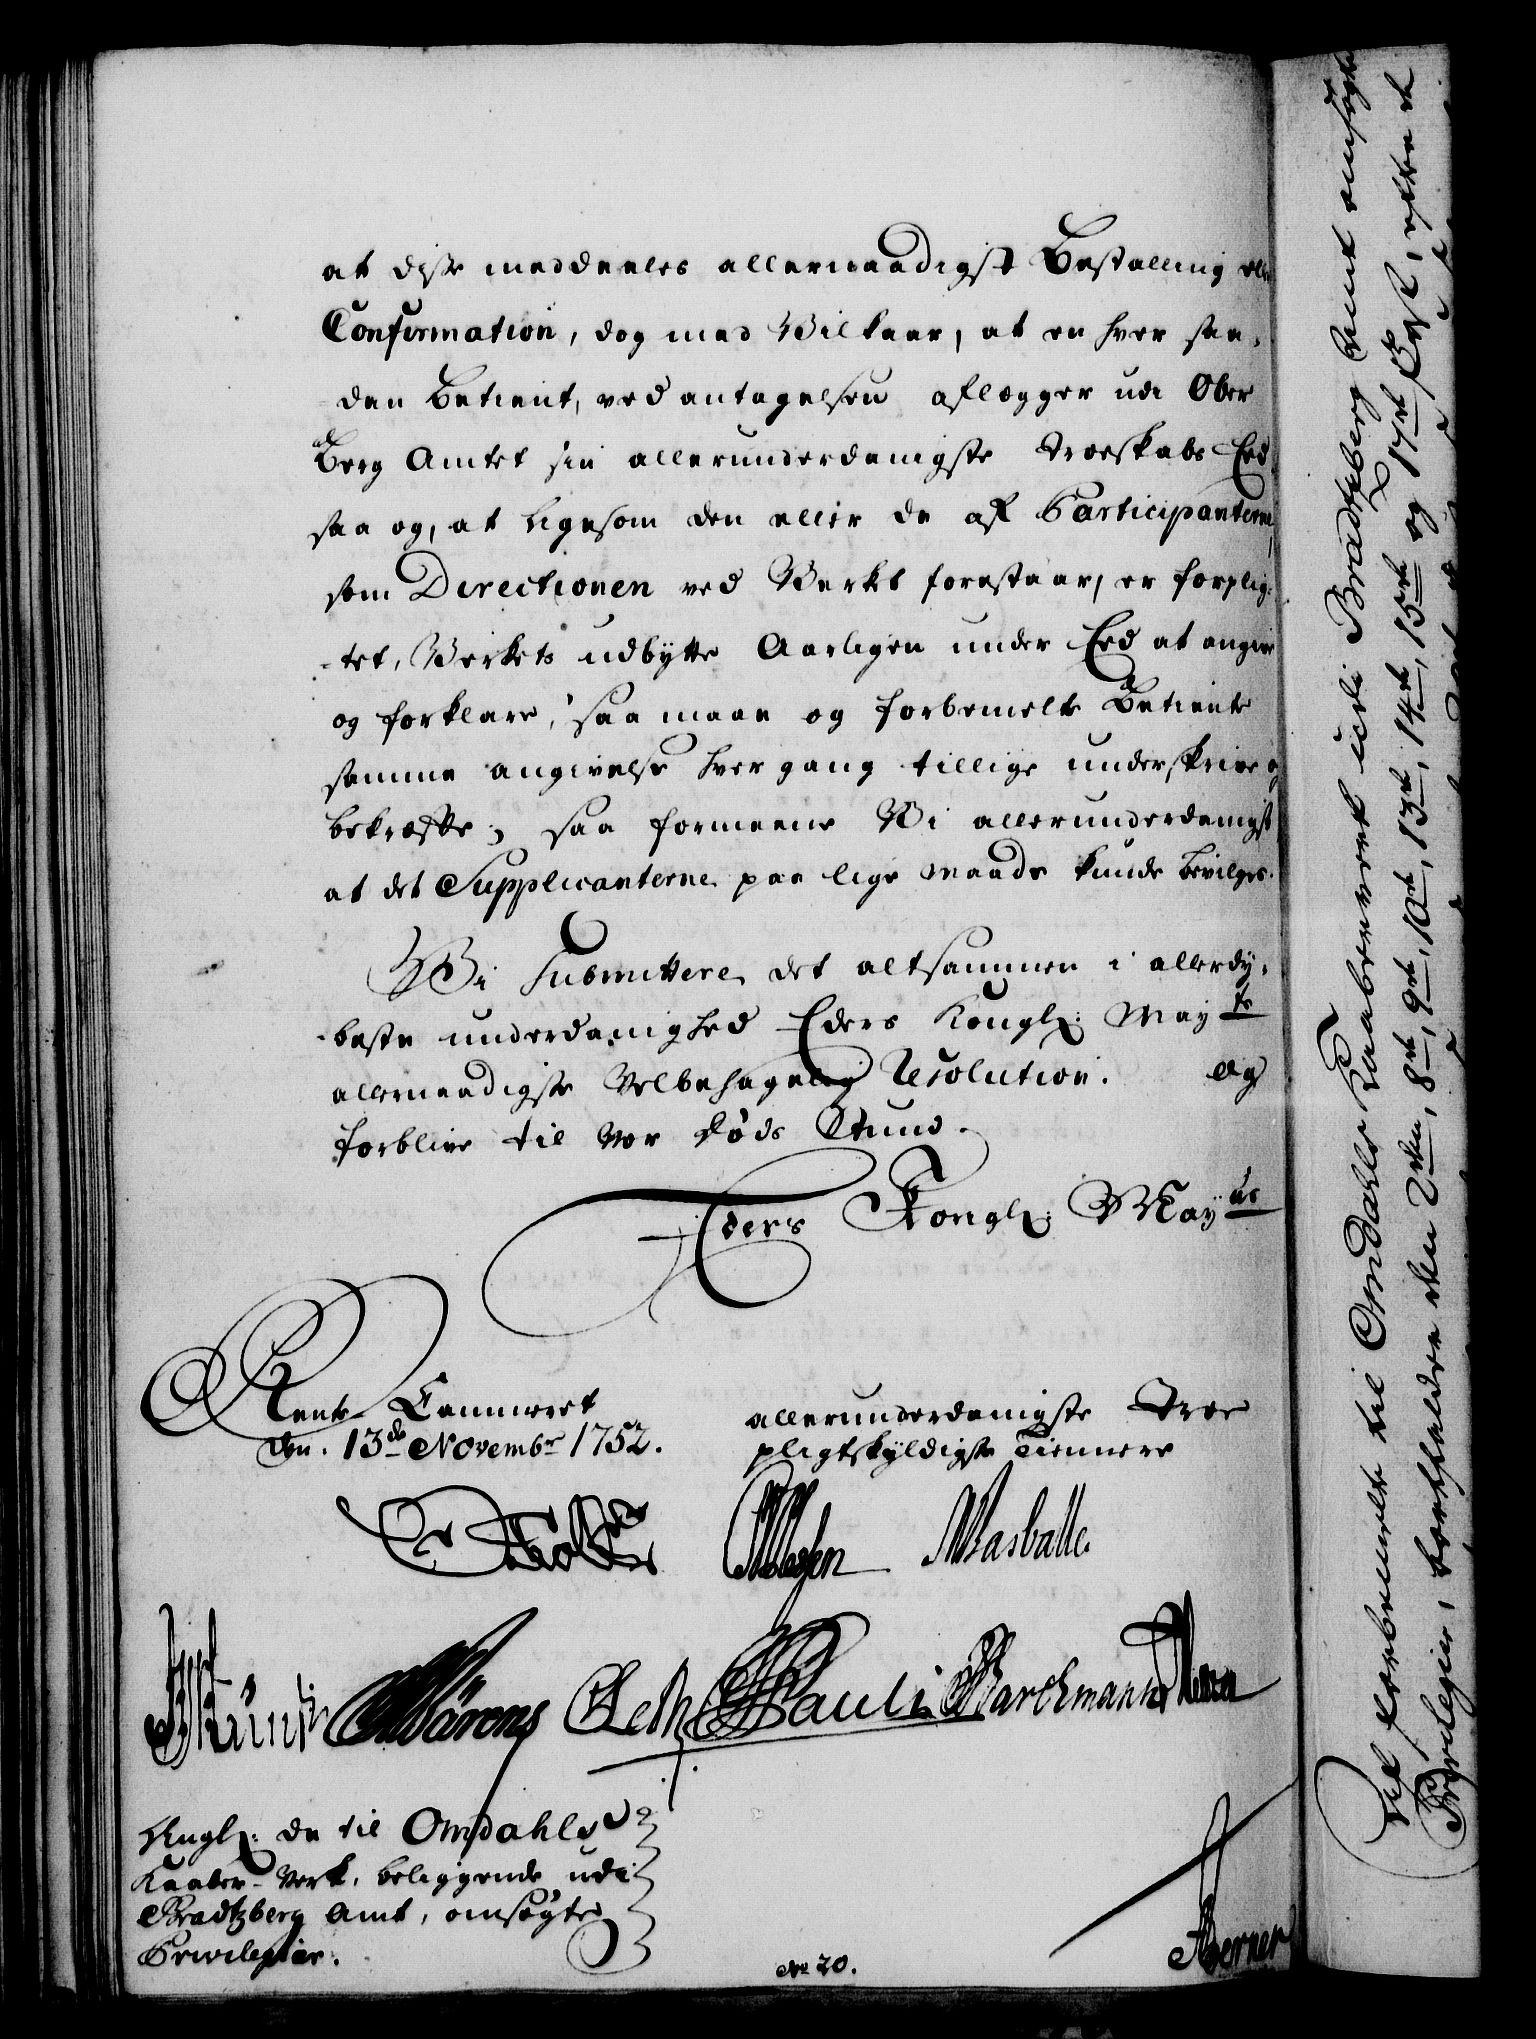 at disse meddeeles allernaadigst Bestalling ell
Confirmation, dog med Vilkaar, at en hver saa-
den Betient, ved antagelsen aflægger udi Ober
Berg Amtet sin allerunderdanigste Troeskabs Eed
saa og, at ligesom den eller de af Participanterne
som Directionen ved Verket forestaar, er forplig-
-tet, Verkets udbytte Aarligen under Eed at angive
og forklare, saa maae og forbemelte Betiente
samme angivelse hver gang tillige underskrive og
bekræfte; saa formeene Vi allerunderdanigst
at det Supplicanterne paa lige maade kunde bevilges.
Vi Submittere det altsammen i allerdy-
-beste underdanighed Eders Kongl: Mayts
allernaadigste Velbehagelig Resolution. Og
forblive til Vor Døds Stund.
Eders Kongl: Mayts
Rente Cammeret
den. 13de Novembr 1752.
allerunderdanigste Troe
pligtskyldigste Tiennere
Masballe.
Pauli Barchmann
Angl: de til Omdahls
Kaaber-Verk, beliggende udi
Bradtzberg Amt, omsøgte
Privilegier.
No 20.
Berner
Til forbemelte til Omdahls Kaaberverk udi Bradtzberg Amt omsøgte
Privilegier, forholdere den 2den, 8de, 9de, 10de, 13de, 14de, 15de og 17de Post, efter de